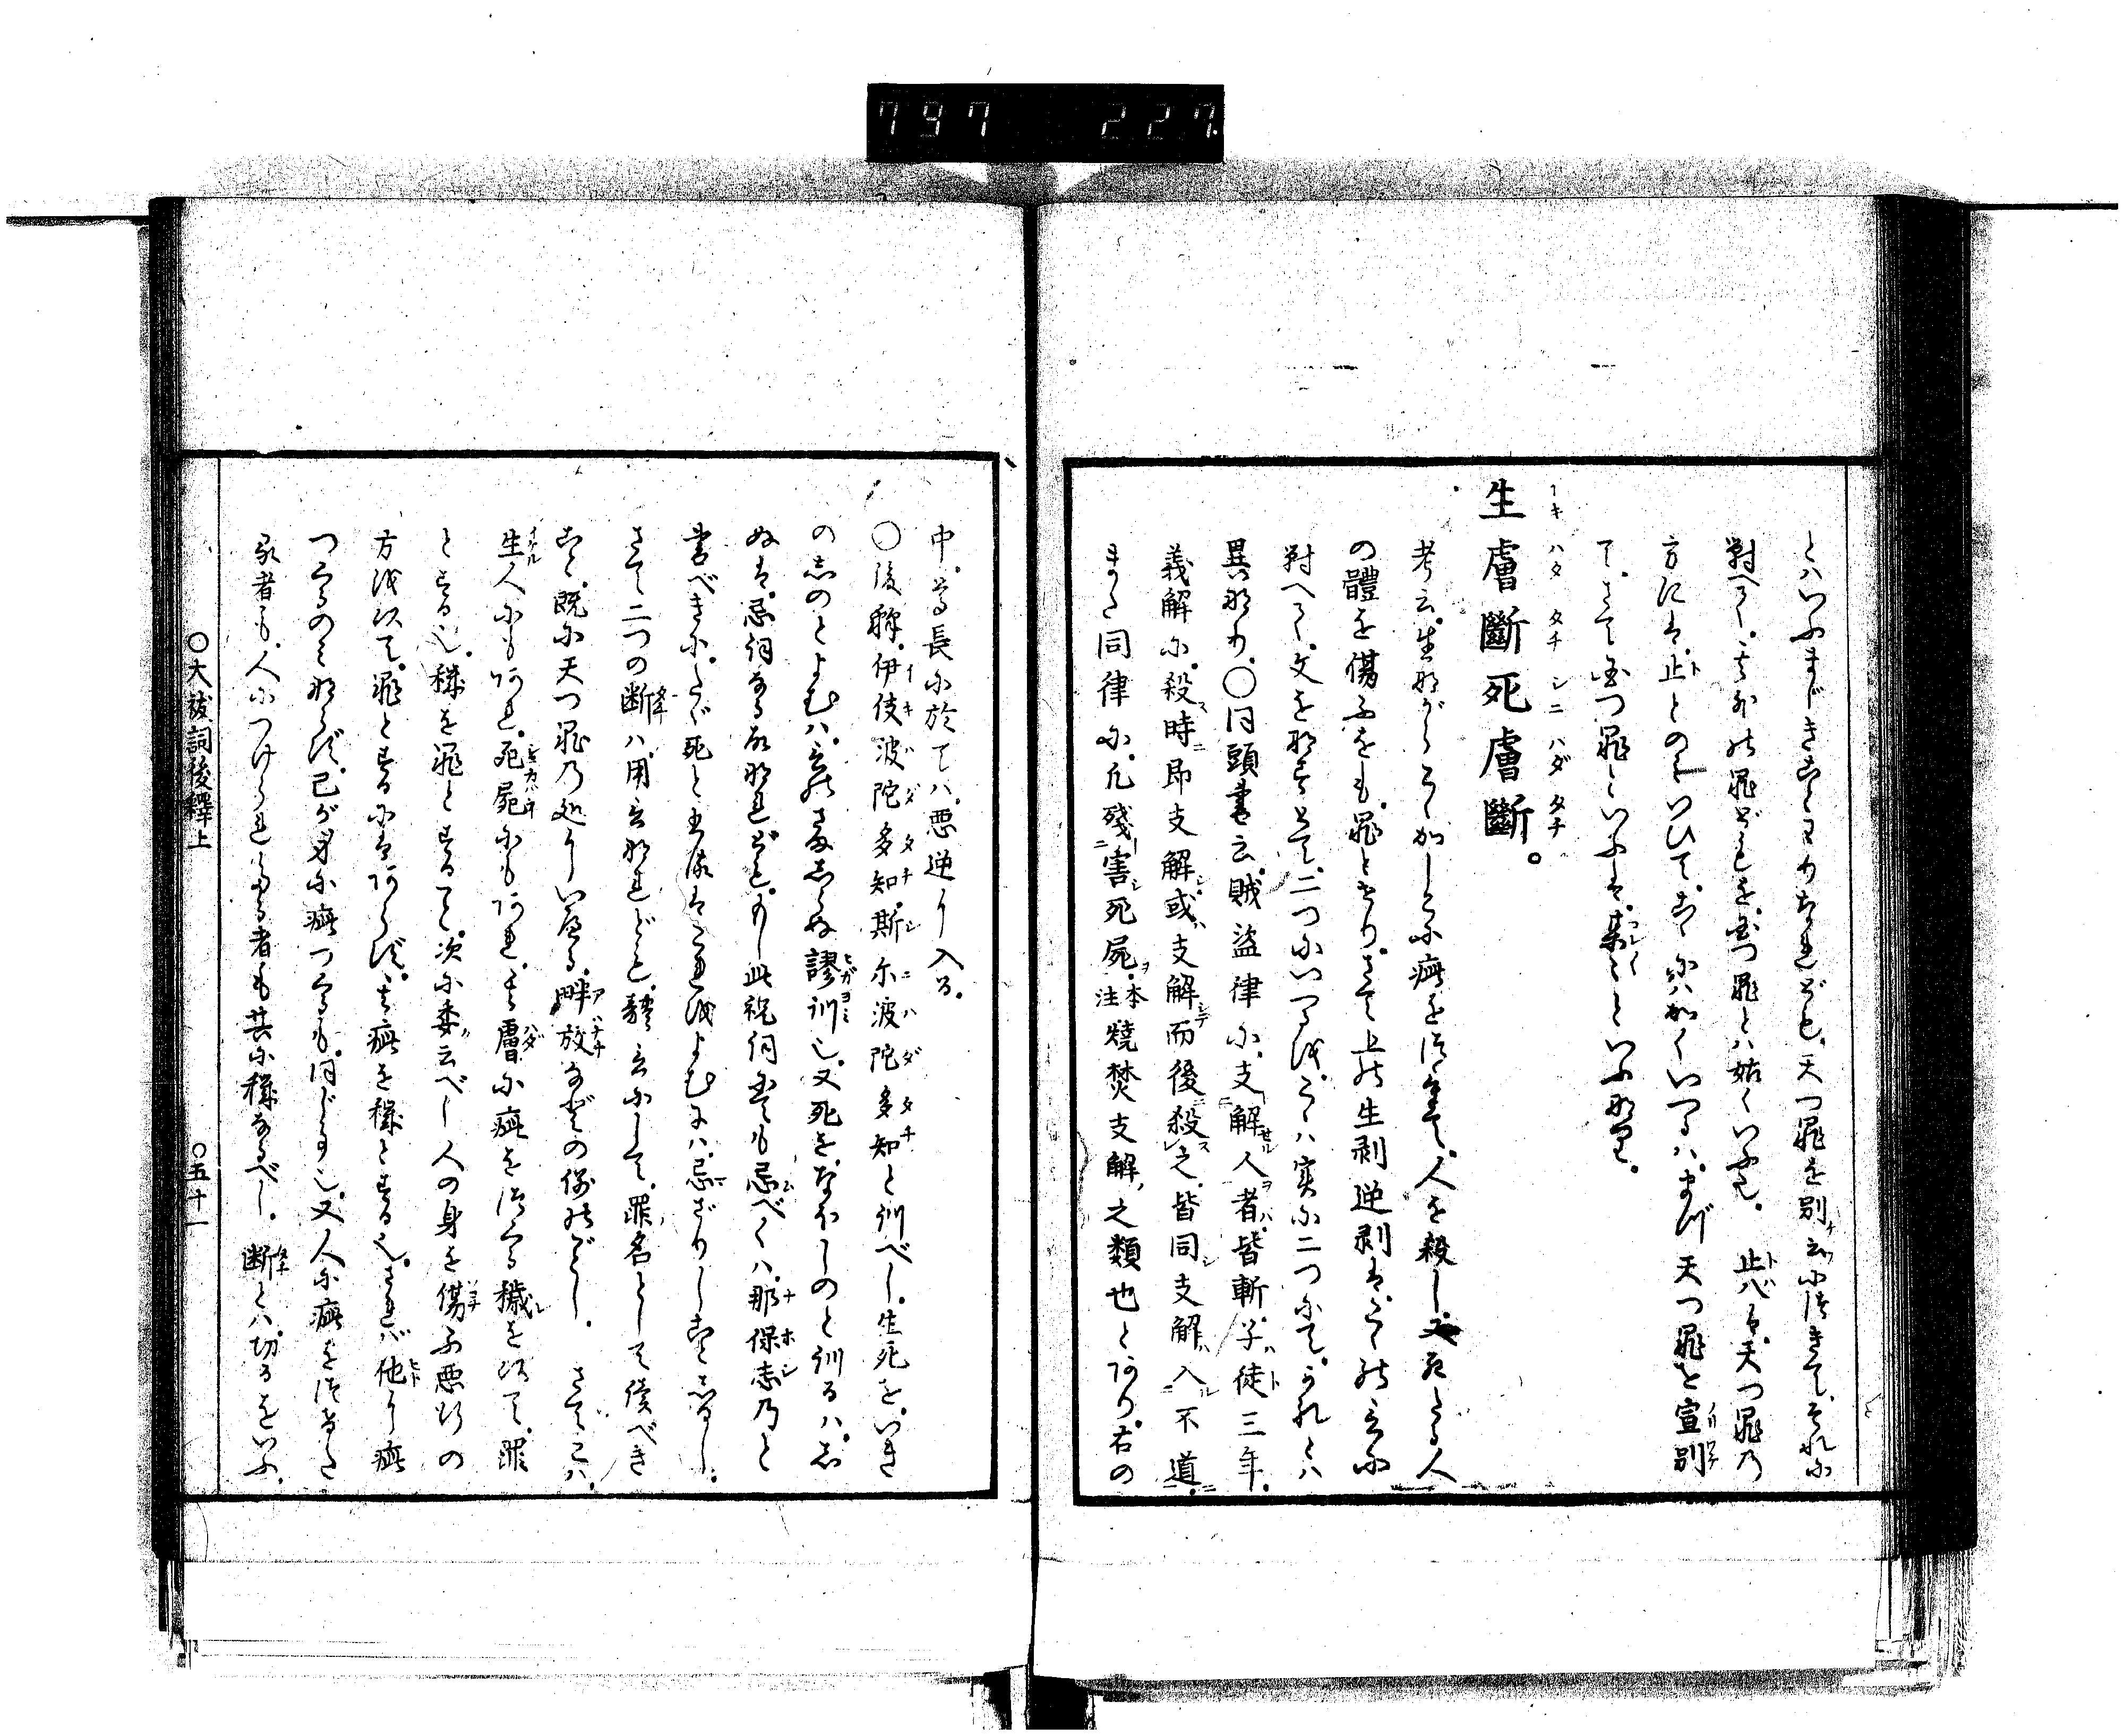 797 227
とハいふまじきことわりなれども、天つ罪を別云につきて、それに
對へて、その外の罪どもを、国つ罪とハ姑くいふ也。止ハ、天つ罪乃
方には、止とのミいひて、こゝにハかくいへるハ、まづ天つ罪と宣別
て、さて国つ罪といふは、某々といふなり。
生膚斷死膚斷。
イキハダタチシニハダタチ
考云、生ながらに加しこに疵をつけて、人を殺し、又死たる人
の體を傷ふをも、罪とせり、さて上の生剥逆剥は、こゝの言に
對へて、文をなすとて、二つにいへるを、こゝハ実に二つにて、
異なり、〇同頭書云、賊盗律に、支解人者、皆斬、子徒三年、
義解に、殺時即支解、或支解而後殺之、皆同支解入不道、
また同律に、凡残害死屍、本注焼焚支解、之類也とあり、右の
中、尊長に於てハ、悪逆に入る、
〇後釋、伊伎波陀多知斯尓波陀多知と訓べし、生死を、いき
のしのとよむハ、
謬訓也、又死を、なほしのと訓るハ、
忌詞なる故なれども、もし此祝詞にても忌べくハ、那保志乃と
書べきに、たゞ死と
さて二つの断ハ、用言なれども、體言にして、罪名として讀べき
こと、既に天つ罪乃処にいへる、畔放などの例のごとし、さてこハ、
生人にもあれ、死屍にもあれ、其膚に疵をつくる穢を以て、罪
とする也、穢を罪とすること、次に委云べし、人の身を傷ふ悪行の
方を以て、罪とするにはあらず、其疵を穢とする也、されバ他に疵
つくるのミならず、己が身に疵つくるも、同じ事也、又人に疵をつけた
る者も、人につけられたる者も、共に穢なるべし、断とハ、切るをいふ、
〇大祓詞後釋上 〇五十一